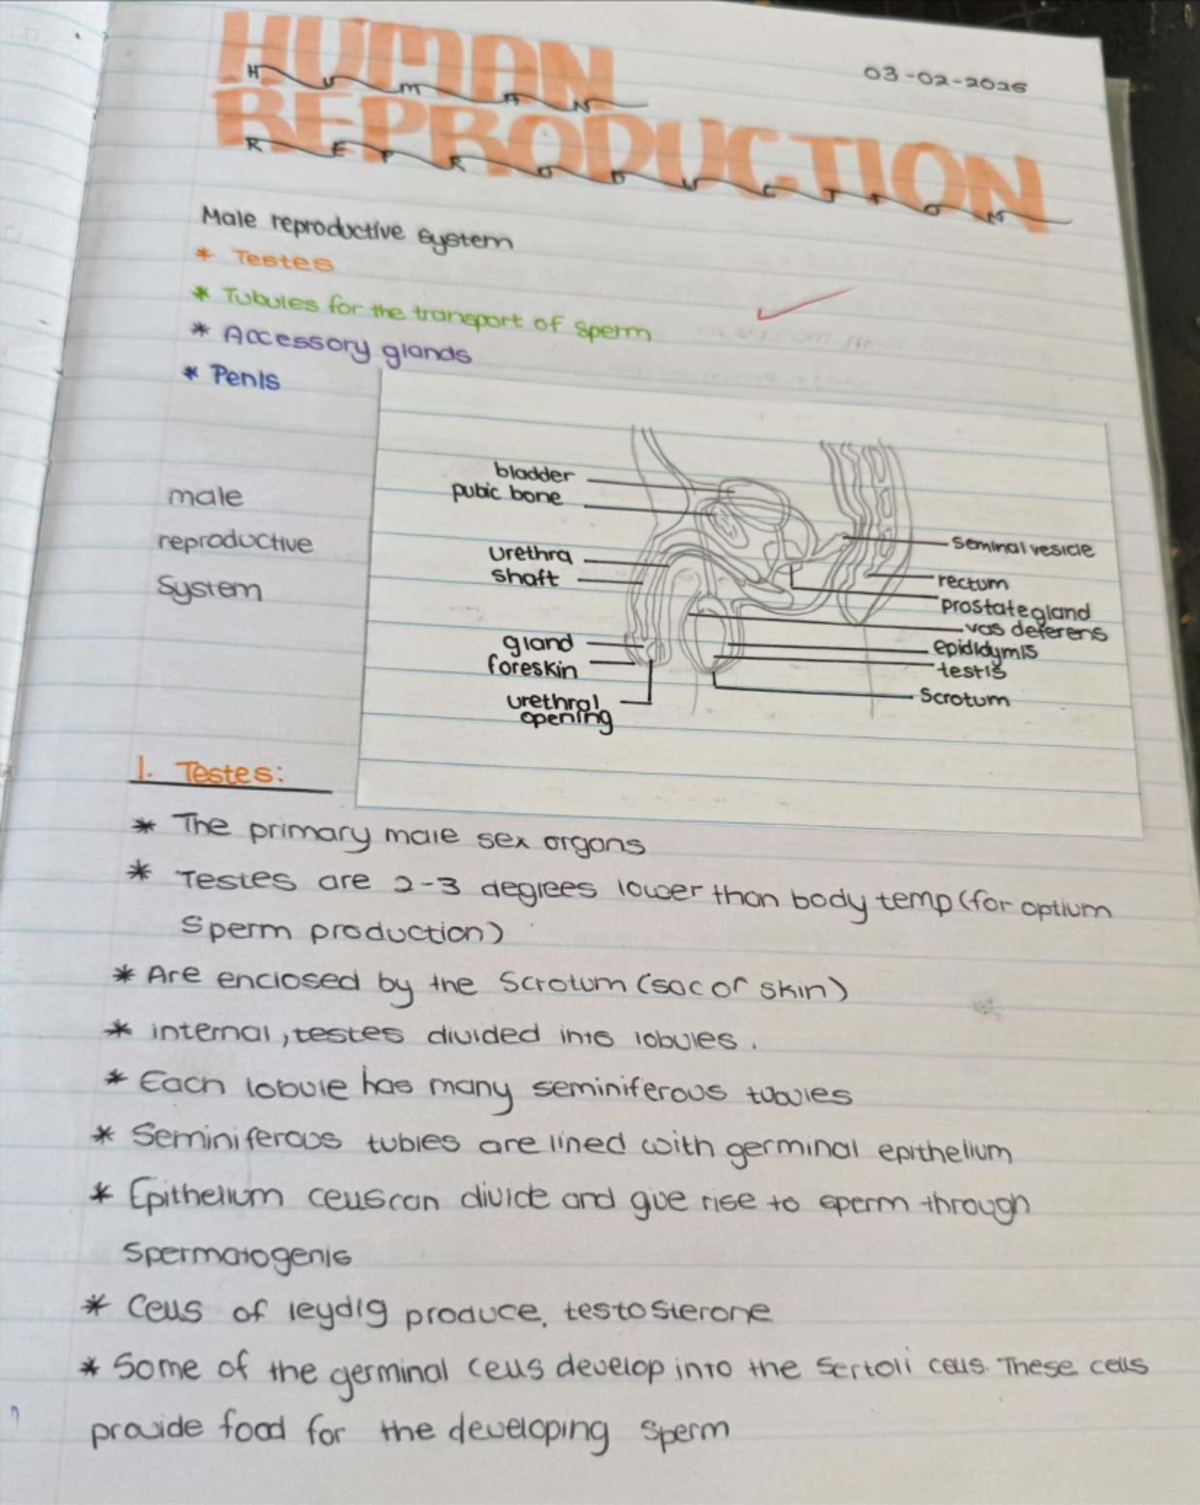 HUMAN
HUMAN
03-02-2025
REPRODUCTION
REPRODUCTION
Male reproductive system
* Testes
* Tubules for the transport of sperm
* Accessory glands
* Penis
male
reproductive
System
bladder
pubic bone
urethra
shaft
gland
foreskin
urethral
opening
seminal vesicle
rectum
prostate gland
vas deferens
epididymis
testis
Scrotum
1. Testes:
* The primary male sex organs
* Testes are 2-3 degrees lower than body temp (for optium
Sperm production)
* Are enclosed by the Scrotum (sac of skin)
* internal, testes divided into lobules.
* Each lobule has many seminiferous tubules
* Seminiferous tubles are lined with germinal epithelium
* Epithelium cells can divide and give rise to sperm through
Spermatogenis
* Cells of leydig produce. testosterone
* Some of the germinal cells develop into the Sertoli cells. These cells
provide food for the developing sperm